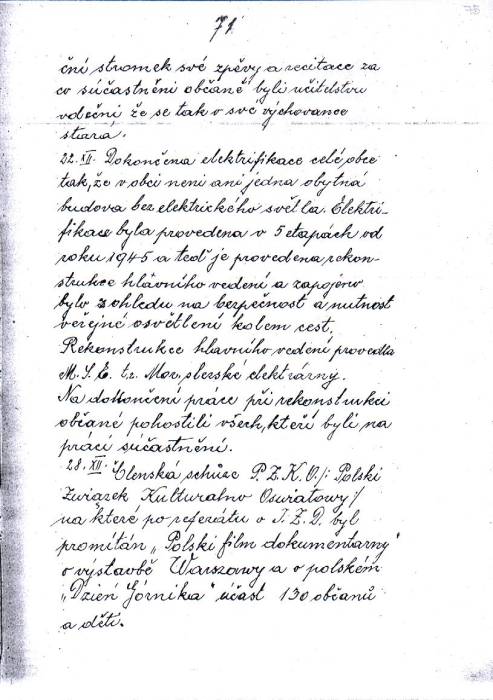 75
71
ční stromek své zpěvy a recitace za
co súčastněni občané byli učitelstvu
vděčni že se tak o své výchovance
stará.
22. XII. Dokončena elektrifikace celé obce
tak, že v obci neni ani jedna obytná
budova bez elektrického světla. Elektri-
fikace byla provedena v 5 etapách od
roku 1945 a teď je provedena rekon-
strukce hlávního vedení a zapojeno
bylo z ohledu na bezpečnost a nutnost
veřejné osvětlení kolem cest.
Rekonstrukce hlavního vedení provedla
M. S. E. t.z. Mor. slezské elektrárny.
Na dokončení práce při rekonstrukci
občané pohostili všech, kteří byli na
práci súčastnění.
28. XII. Členská schůze P. Z. K. O. /: Polski
Związek Kulturalno Oswiatowy/
na které po referátu o J. Z. D. byl
promítán „Polski film dokumentarny"
o výstavbě Warszawy a o polském
„Dzień Górnika" účast 130 občanů
a děti.